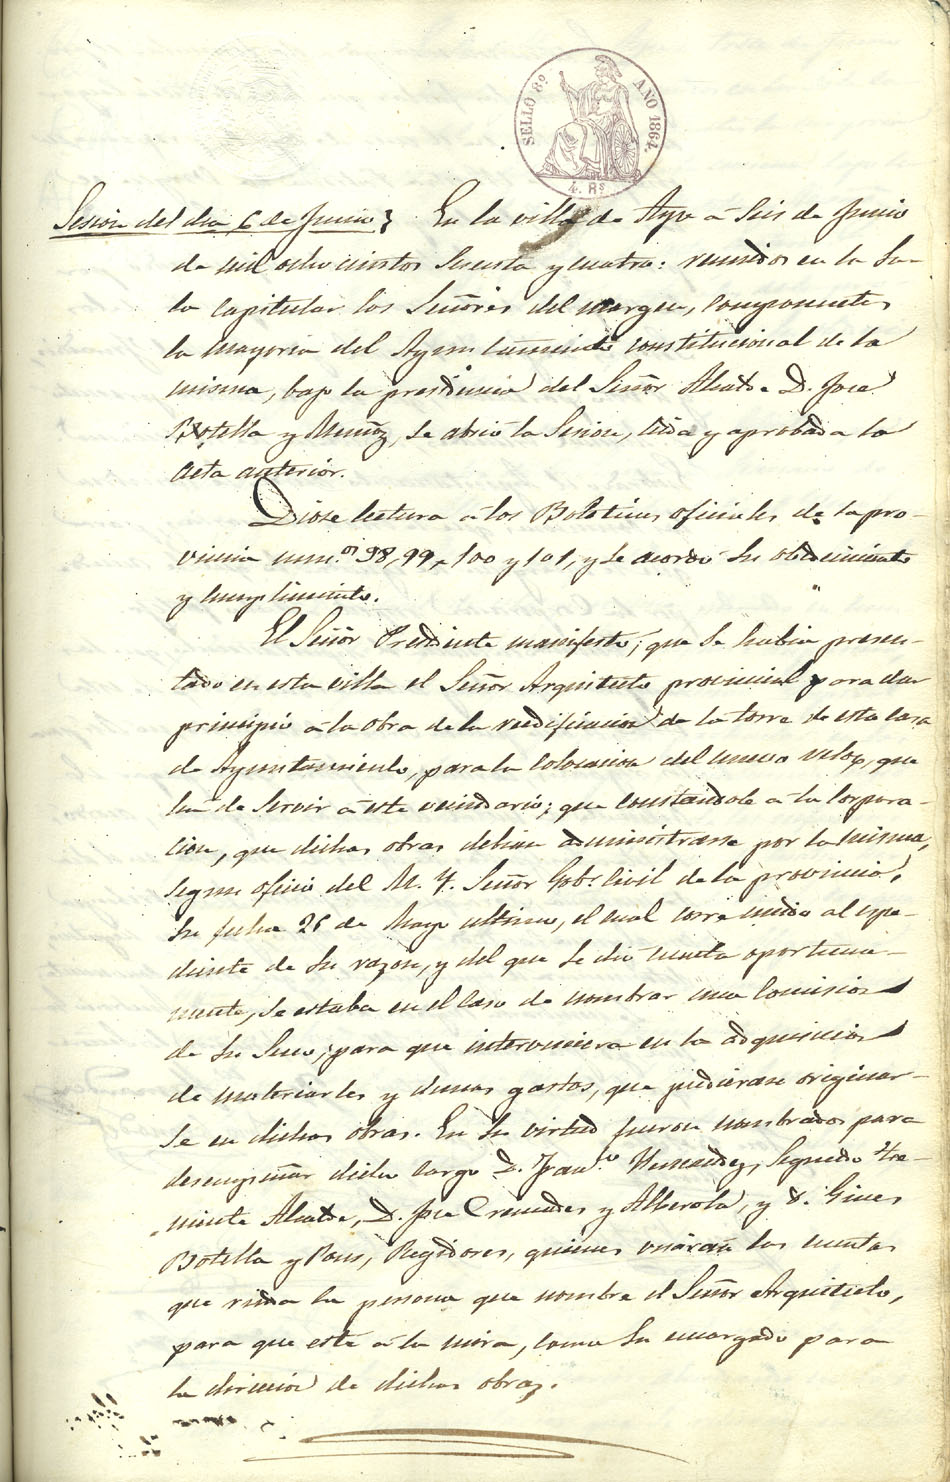 SELLO 8.º AÑO 1864.
4. Rs.
Sesion del dia 6 de Junio} En la villa de Aspe á seis de Junio
de mil ochocientos sesenta y cuatro: reunidos en la Sa-
la capitular los Señores del margen, componentes
la mayoria del Ayuntamiento constitucional de la
misma, bajo la presidencia del Señor Alcalde D. José
Botella y Muñoz, se abrió la Sesion, leida y aprobada la
acta anterior.
Diose lectura á los Boletines oficiales de la pro-
vincia num.os 98, 99, 100 y 101, y se acordó su obedecimiento
y cumplimiento.
El Señor Presidente manifestó; que se habia presen-
tado en esta villa el Señor Arquitecto provincial para dar
principio á la obra de la reedificacion de la torre de esta casa
de Ayuntamiento, para la colocacion del nuevo relox, que
ha de servir á este vecindario; que constandole á la corpora-
cion, que dichas obras debian administrarse por la misma,
segun oficio del M. Y. Señor Gobr. Civil de la provincia,
su fecha 25 de Mayo ultimo, el cual corre unido al espe-
diente de su razon, y del que se dió cuenta oportuna-
mente, se estaba en el caso de nombrar una Comision
de su seno, para que interviniera en la adquisicion
de materiales y demas gastos, que pudieran originar-
se en dichas obras. En su virtud fueron nombrados para
desempeñar dicho cargo D. Fran.co Hernandez, Segundo The-
niente Alcalde, D. José Cremades y Alberola, y D. Gines
Botella y Pons, Regidores, quienes visarán las cuentas
que rinda la persona que nombre el Señor Arquitecto,
para que esté á la mira, como su encargado para
la direccion de dichas obras.